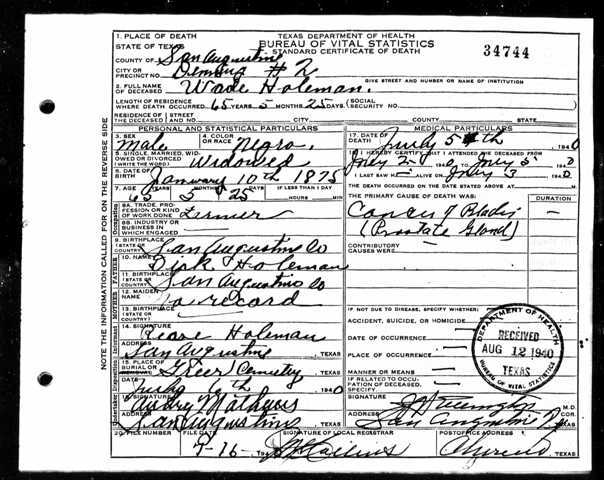 TEXAS DEPARTMENT OF HEALTH
BUREAU OF VITAL STATISTICS
STANDARD CERTIFICATE OF DEATH
34744
1. PLACE OF DEATH
STATE OF TEXAS
COUNTY OF San Augustine
CITY OR PRECINCT NO. # 2
GIVE STREET AND NUMBER OR NAME OF INSTITUTION
2. FULL NAME OF DECEASED Wade Holeman.
LENGTH OF RESIDENCE WHERE DEATH OCCURRED 65 YEARS 5 MONTHS 25 DAYS SOCIAL SECURITY NO.
RESIDENCE OF THE DECEASED STREET AND NO. CITY COUNTY STATE
PERSONAL AND STATISTICAL PARTICULARS
3. SEX Male
4. COLOR OR RACE Negro.
5. SINGLE, MARRIED, WIDOWED OR DIVORCED (WRITE THE WORD) Widowed
6. DATE OF BIRTH January 10th 1875
7. AGE 65 YEARS 5 MONTHS 25 DAYS IF LESS THAN 1 DAY HOURS MIN.
8A. TRADE, PROFESSION OR KIND OF WORK DONE Farmer
8B. INDUSTRY OR BUSINESS IN WHICH ENGAGED
9. BIRTHPLACE (STATE OR COUNTRY) San Augustine Co
10. NAME Dirk Holeman
11. BIRTHPLACE (STATE OR COUNTRY) San Augustine Co
12. MAIDEN NAME No record
13. BIRTHPLACE (STATE OR COUNTRY)
14. SIGNATURE Holeman
ADDRESS San Augustine TEXAS
15. PLACE OF BURIAL OR REMOVAL (Greer) Cemetery TEXAS
DATE July 6th 1940
16. SIGNATURE Audry Mathews
ADDRESS San Augustine TEXAS
MEDICAL PARTICULARS
17. DATE OF DEATH July 5th 1940
18. I HEREBY CERTIFY THAT I ATTENDED THE DECEASED FROM
July 2 1940 TO July 5 1940
I LAST SAW ALIVE ON July 3 1940
THE DEATH OCCURRED ON THE DATE STATED ABOVE AT M.
THE PRIMARY CAUSE OF DEATH WAS: DURATION
Cancer of Bladder
(Prostate Gland)
CONTRIBUTORY CAUSES WERE
IF NOT DUE TO DISEASE, SPECIFY WHETHER:
ACCIDENT, SUICIDE, OR HOMICIDE
DATE OF OCCURRENCE
PLACE OF OCCURRENCE
MANNER OR MEANS
IF RELATED TO OCCUPATION OF DECEASED, SPECIFY.
SIGNATURE M.D. COR.
ADDRESS San Augustine TEXAS
20. FILE NUMBER FILE DATE SIGNATURE OF LOCAL REGISTRAR POSTOFFICE ADDRESS
7-16-
DEPARTMENT OF HEALTH
RECEIVED
AUG 12 1940
TEXAS
BUREAU OF VITAL STATISTICS
NOTE THE INFORMATION CALLED FOR ON THE REVERSE SIDE